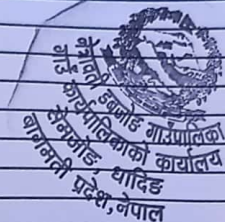 गंगाजमुना गाउँपालिका
गाउँ कार्यपालिकाको कार्यालय
सेमजोङ, धादिङ
बागमती प्रदेश, नेपाल